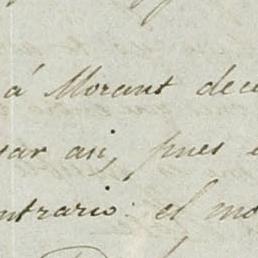 á Morant dec
sar asi, pues
ntrario: el mo